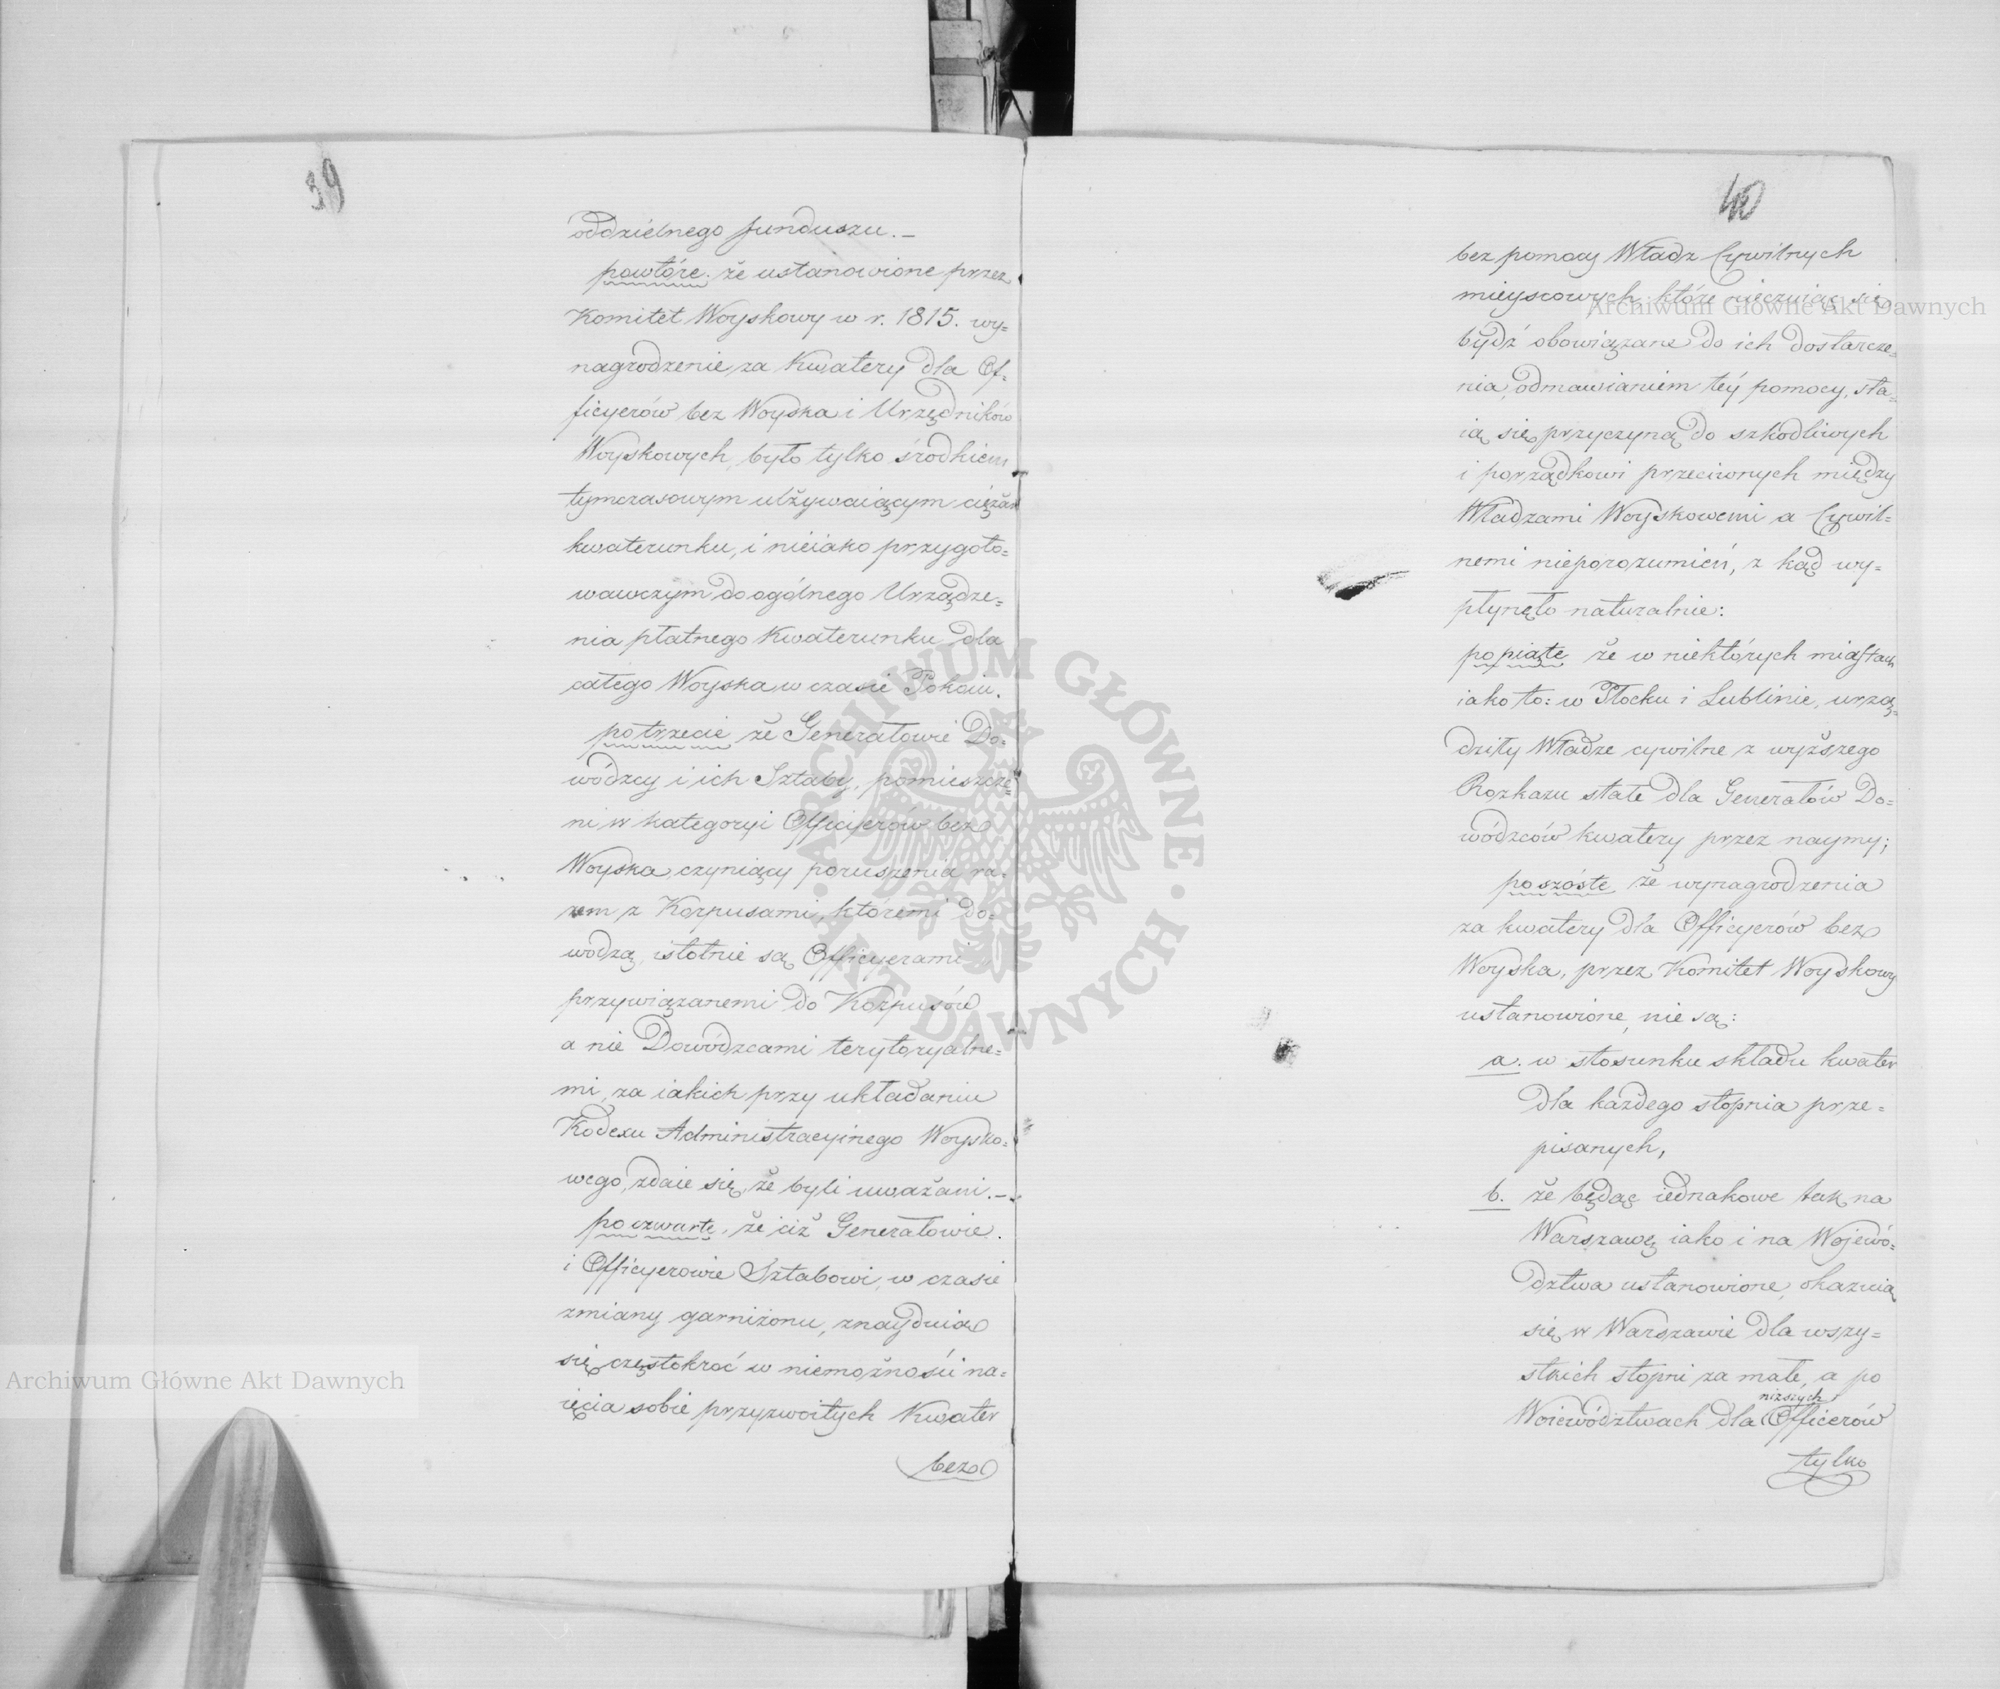 39
oddzielnego funduszu.—
powtóre. że ustanowione przez
Komitet Woyskowy w r. 1815. wy=
nagrodzenie za Kwatery dla Of=
ficyerów bez Woyska i Urzędników
Woyskowych, było tylko środkiem
tymczasowym ulżywaiącym ciężar
kwaterunku, i nieiako przygoto=
wawczym do ogólnego Urządze=
nia płatnego Kwaterunku dla
całego Woyska w czasie Pokoiu.
potrzecie że Generałowie Do=
wódzcy i ich Sztaby, pomieszcze=
ni w kategoryi Officyerów bez
Woyska czyniący poruszenia ra=
zem z Korpusami, któremi do=
wodzą, istotnie są Officyerami
przywiązanemi do Korpusów
a nie Dowódzcami terytoryalne=
mi, za iakich przy układaniu
Kodexu Administracyinego Woysko=
wego, zdaie się, że byli uważani.—
poczwarte, że ciż Generałowie
i Officyerowie Sztabowi, w czasie
zmiany garnizonu, znayduią
się częstokroć w niemożności na=
ięcia sobie przyzwoitych Kwater
bez
40
bez pomocy Władz Cywilnych
mieyscowych, które nieczuiąc się
bydź obowiązane do ich dostarcze=
nia, odmawianiem téy pomocy, sta=
ią się przyczyną do szkodliwych
i porządkowi przeciwnych między
Władzami Woyskowemi a Cywil=
nemi nieporozumień, z kąd wy=
płynęło naturalnie:
popiąte że w niektórych miastach
iako to: w Płocku i Lublinie, urzą=
dziły Władze cywilne z wyższego
Rozkazu stałe dla Generałów Do=
wódzców kwatery przez naymy;
poszóste że wynagrodzenia
za kwatery dla Officyerów bez
Woyska, przez Komitet Woyskowy
ustanowione, nie są:
a. w stosunku składu kwater
dla każdego stopnia prze=
pisanych,
b. że będąc iednakowe tak na
Warszawę iako i na Wojewó=
dztwa ustanowione, okazuią
się w Warszawie dla wszy=
stkich stopni za małe, a po
niższych
Woiewództwach dla Officerów
tylko
Archiwum Główne Akt Dawnych
Archiwum Główne Akt Dawnych
ARCHIWUM GŁÓWNE · AKT DAWNYCH ·